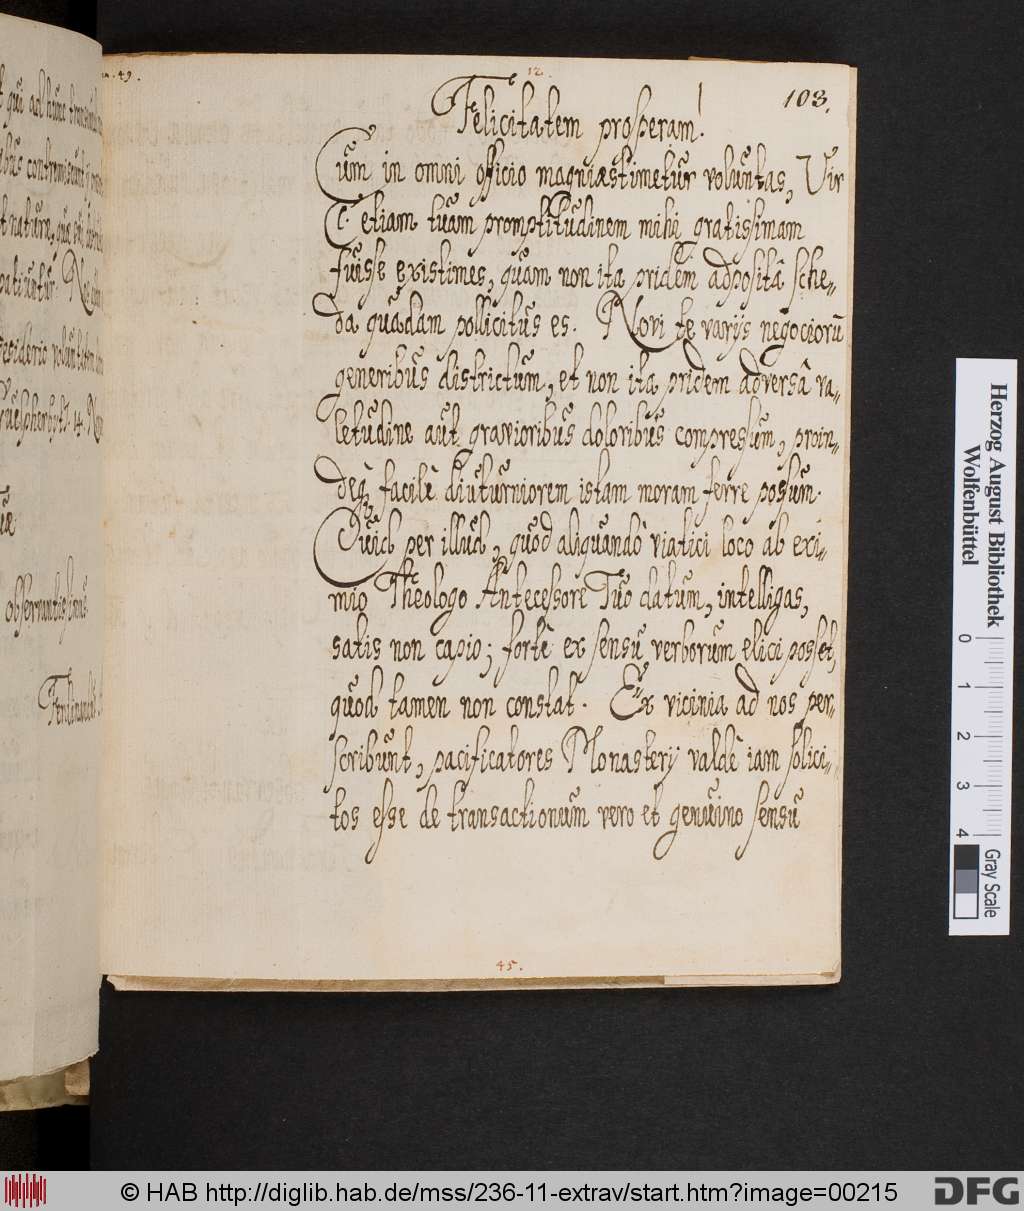 t qui ad hunc
ibus contremiscunt
t naturæ, quæ
patiuntur. Nec
desiderio voluntatem
Guelpherbyti 14. No
observantissimus
Ferdinandus
49.
12.
103.
Felicitatem prosperam!
Cum in omni officio magni æstimetur voluntas, Vir
C. etiam tuam promptitudinem mihi gratissimam
fuisse existimes, quam non ita pridem adposita sche-
da quadam pollicitus es. Novi te varijs negociorū
generibus districtum, et non ita pridem adversâ va-
letudine aut gravioribus doloribus compressum, proin-
deq; facilè diuturniorem istam moram ferre possum.
Quid per illud, quod aliquando viatici loco ab exi-
mio Theologo Antecessore Tuo datum, intelligas,
satis non capio; fortè ex sensu verborum elici posset,
quod tamen non constat. Ex vicinia ad nos per-
scribunt, pacificatores Monasterij valdè iam solici-
tos esse de transactionum vero et genuino sensu
45.
Herzog August Bibliothek
Wolfenbüttel
0 1 2 3 4
Gray Scale
© HAB http://diglib.hab.de/mss/236-11-extrav/start.htm?image=00215
DFG